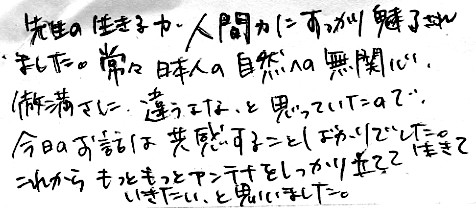 先生の生きる力、人間力にすっかり魅了され
ました。常々日本人の自然への無関心、
傲満さに、違うよな、と思っていたので、
今日のお話は共感することばかりでした。
これからもっともっとアンテナをしっかり立てて生きて
いきたい、と思いました。